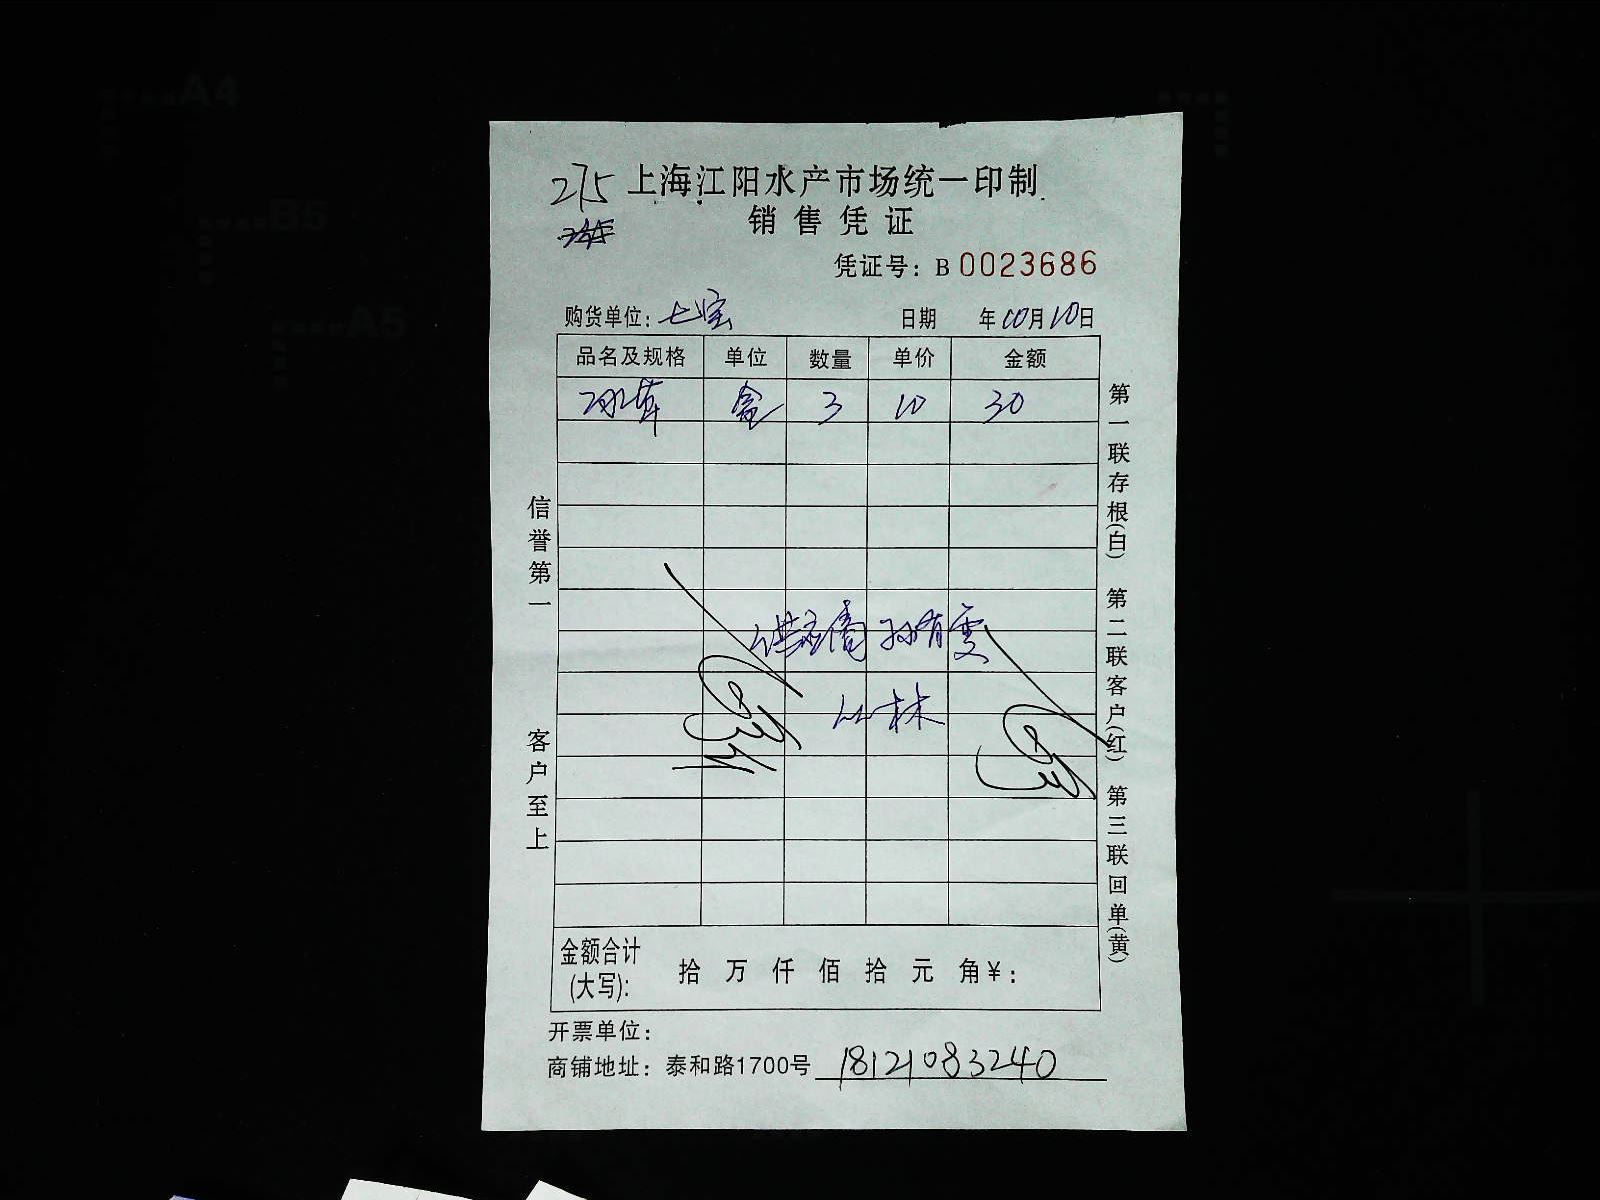 275 上海江阳水产市场统一印制
销售凭证
凭证号：B 0023686
购货单位：七宝 日期 年10月10日
品名及规格 单位 数量 单价 金额
冰草 盒 3 10 30
供应商 孙有雯
林
金额合计(大写)： 拾 万 仟 佰 拾 元 角￥：
开票单位：
商铺地址：泰和路1700号 18121083240
信誉第一 客户至上
第一联存根(白) 第二联客户(红) 第三联回单(黄)
A4
B5
A5